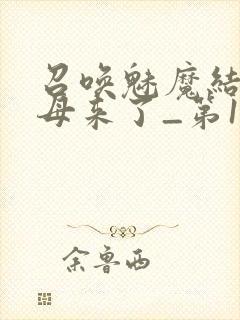 召唤魅魔结
母来了_第1
余鲁西